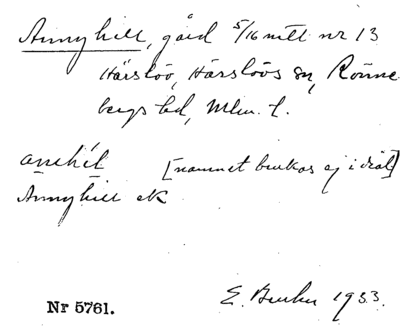 Annyhill, gård 5/16 mtl nr 13
Härslöv, Härslövs sn, Rönne-
bergs hd, Mlm. l.
anehil [namnet brukas ej i dial.]
Annyhill ek
Nr 5761.
E. 1933.